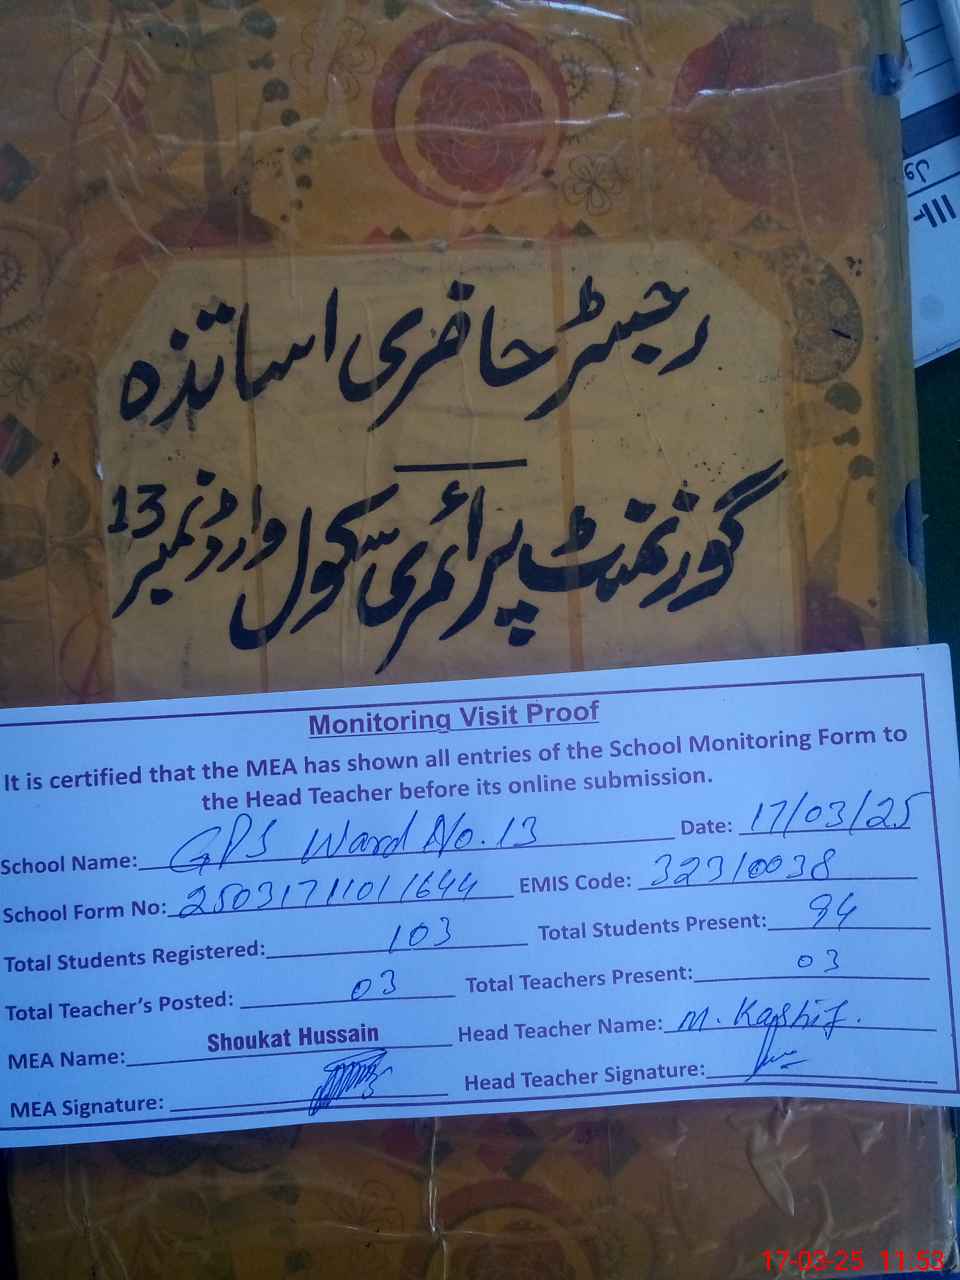 رجسٹر حاضری اساتذہ
گورنمنٹ پرائمری سکول وارڈ نمبر 13
Monitoring Visit Proof
It is certified that the MEA has shown all entries of the School Monitoring Form to
the Head Teacher before its online submission.
School Name: GPS Ward No. 13 Date: 17/03/25
School Form No: 25031711011644 EMIS Code: 32310038
Total Students Registered: 103 Total Students Present: 94
Total Teacher's Posted: 03 Total Teachers Present: 03
MEA Name: Shoukat Hussain Head Teacher Name: M. Kashif.
MEA Signature: Head Teacher Signature:
17-03-25 11:53